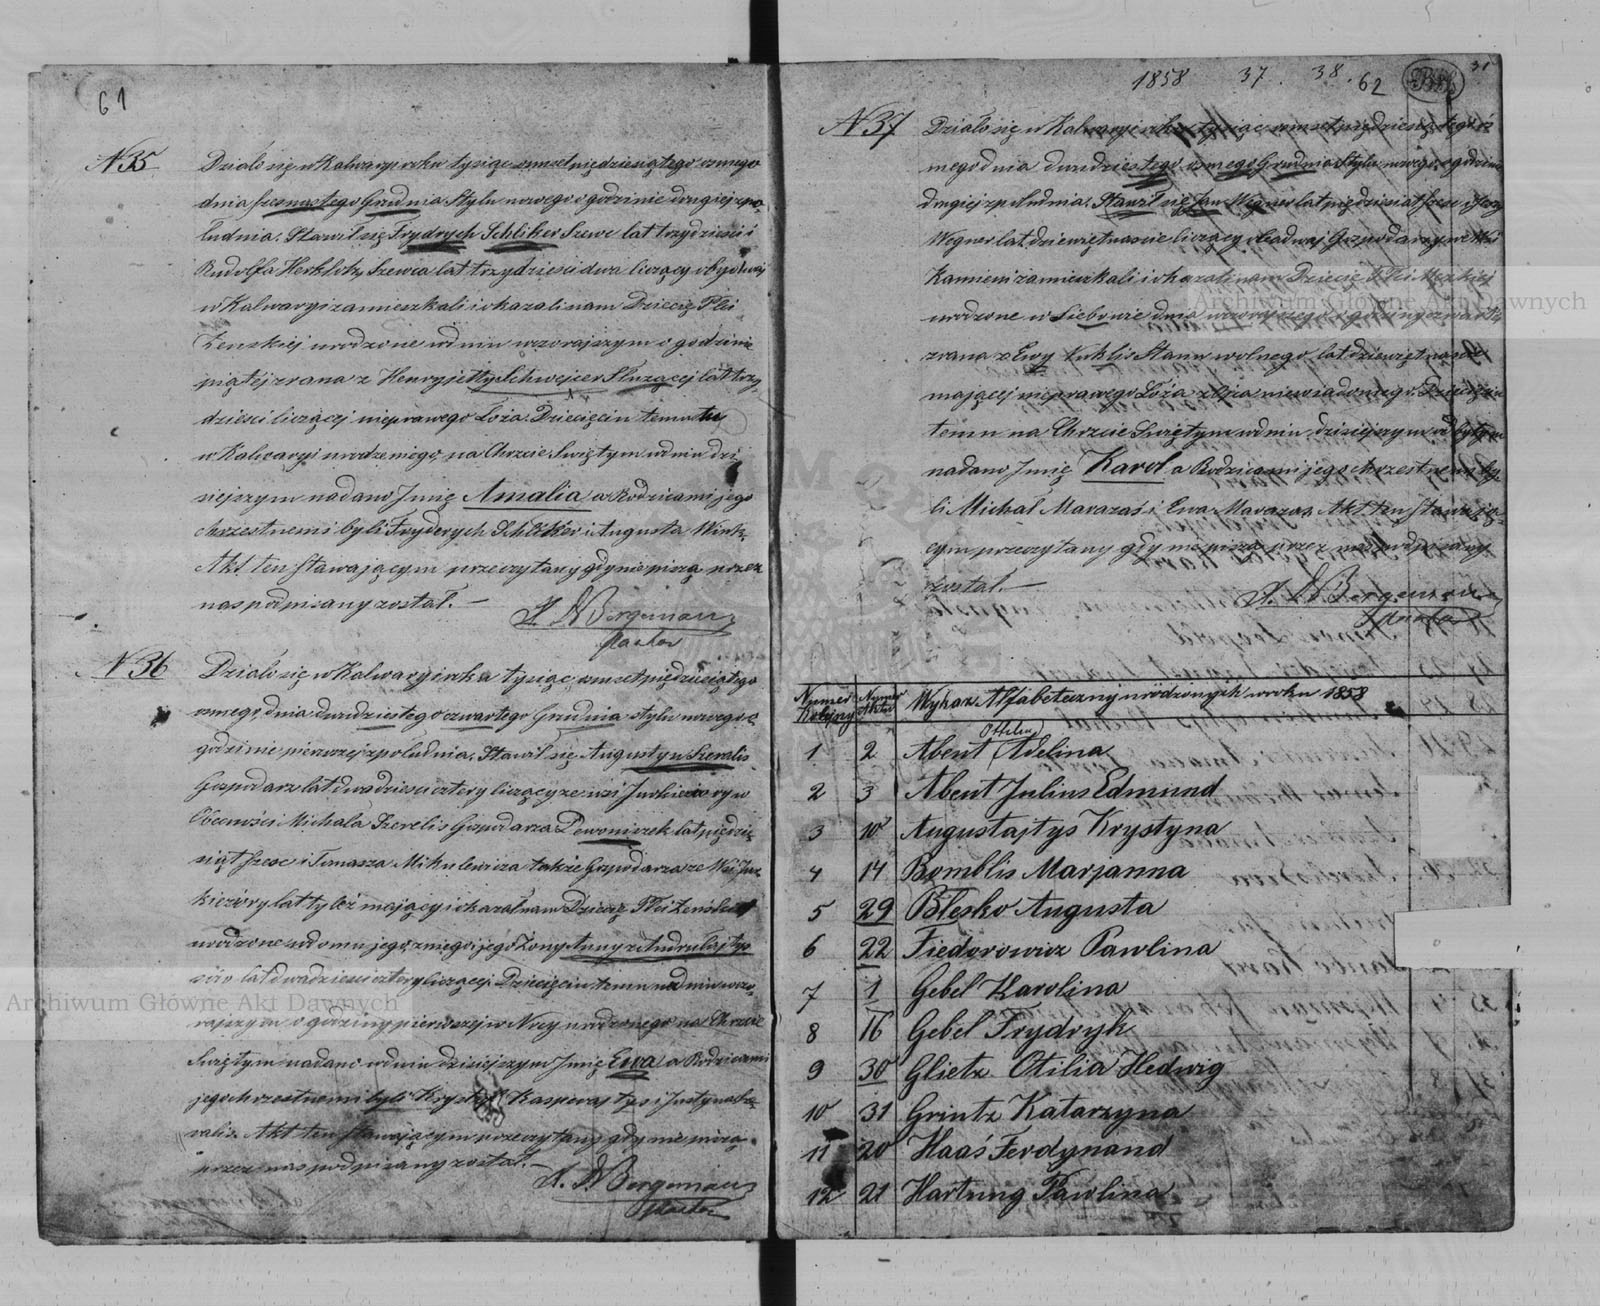 61
N 35
Działo się w Kalwaryi roku tysiąc ośmset pięćdziesiątego ósmego
dnia Grudnia Stylu nowego o godzinie drugiej z po-
łudnia. Stawił się Frydrych Schliker Szewc lat trzydzieści i
Rudolfa Herklotz Szewca lat trzydzieści dwa liczący obydwaj
w Kalwaryi zamieszkali i okazali nam Dziecię Płci
Żeńskiej urodzone w dniu wczorajszym o godzinie
piątej zrana z Henryjetty Schwejcer Służącej lat trzy-
dzieści liczącej nieprawego Łoża. Dziecięciu temu tu
w Kalwaryi urodzonego, na Chrzcie Świętym w dniu dzi
siejszym nadano Imię Amalia a Rodzicami jego
chrzestnemi byli Fryderych Schliker i Augusta Wink.
Akt ten stawającym przeczytany gdy nie piszą przez
nas podpisany został. —
Bergemann
Pastor
N 36
Działo się w Kalwaryi roku tysiąc ośmset pięćdziesiątego
ósmego, dnia dwudziestego czwartego Grudnia stylu nowego o
godzinie pierwszej z południa. Stawił się Augustyn Szeralis
Gospodarz lat dwadzieścia cztery liczący ze wsi w
Obecności Michała Gospodarza Dewoniszek lat pięćdzie
siąt sześć i Tomasza Mikulewicza także Gospodarza ze Wsi
lat tyleż mający i okazał nam Dziecię Płci Żeńskiej
urodzone w domu jego, z niego i jego Żony Anny z Andrulajtys
ciów lat dwadzieścia cztery liczącej. Dziecięciu temu w dniu wczo-
rajszym o godziny pierwszej w Nocy urodzonego na Chrzcie
Świętym nadano w dniu dzisiejszym Imię Ewa a Rodzicami
jego chrzestnemi byli Krystyn Kasperajtys i Justyna
Akt ten stawającym przeczytany gdy nie piszą
przez nas podpisany został. —
Bergemann
Pastor
1858 37. 38. 62 31
N 37
Działo się w Kalwaryi roku tysiąc ośmset pięćdziesiątego ós
mego dnia dwudziestego ósmego Grudnia Stylu nowego o godzinie
drugiej z południa. Stawił się Jan Wegner lat pięćdziesiąt sześć i Jerzy
Wegner lat dziewiętnaście liczący obadwaj Gospodarzy we Wsi
Kamieni zamieszkali i okazali nam Dziecię Płci Męzkiej
urodzone w dnia wczorajszego o godziny czwartej
zrana z Ewy Kuklis Stanu wolnego lat dziewiętnaście
mającej nieprawego Łoża z Ojca niewiadomego. Dziecięciu
temu na Chrzcie Świętym w dniu dzisiejszym odbytym
nadano Imię Karol a Rodzicami jego chrzestnemi by
li Michał Marazas i Ewa Marazas. Akt ten stawają-
cym przeczytany gdy nie piszą przez nas podpisany
został. —
Bergemann
Pastor
Numer Kolejny Numer Aktu Wykaz Alfabeteczny urodzonych w roku 1858
Ottilia
1 2 Abent Adelina
2 3 Abent Julius Edmund
3 10 Augustajtys Krystyna
4 14 Bomblis Marjanna
5 29 Blesko Augusta
6 22 Fiedorowicz Pawlina
7 1 Gebel Karolina
8 16 Gebel Frydryk
9 30 Glietz Otilia Hedwig
10 31 Grintz Katarzyna
11 20 Haaś Ferdynand
12 21 Hartung Pawlina
Archiwum Główne Akt Dawnych
Archiwum Główne Akt Dawnych